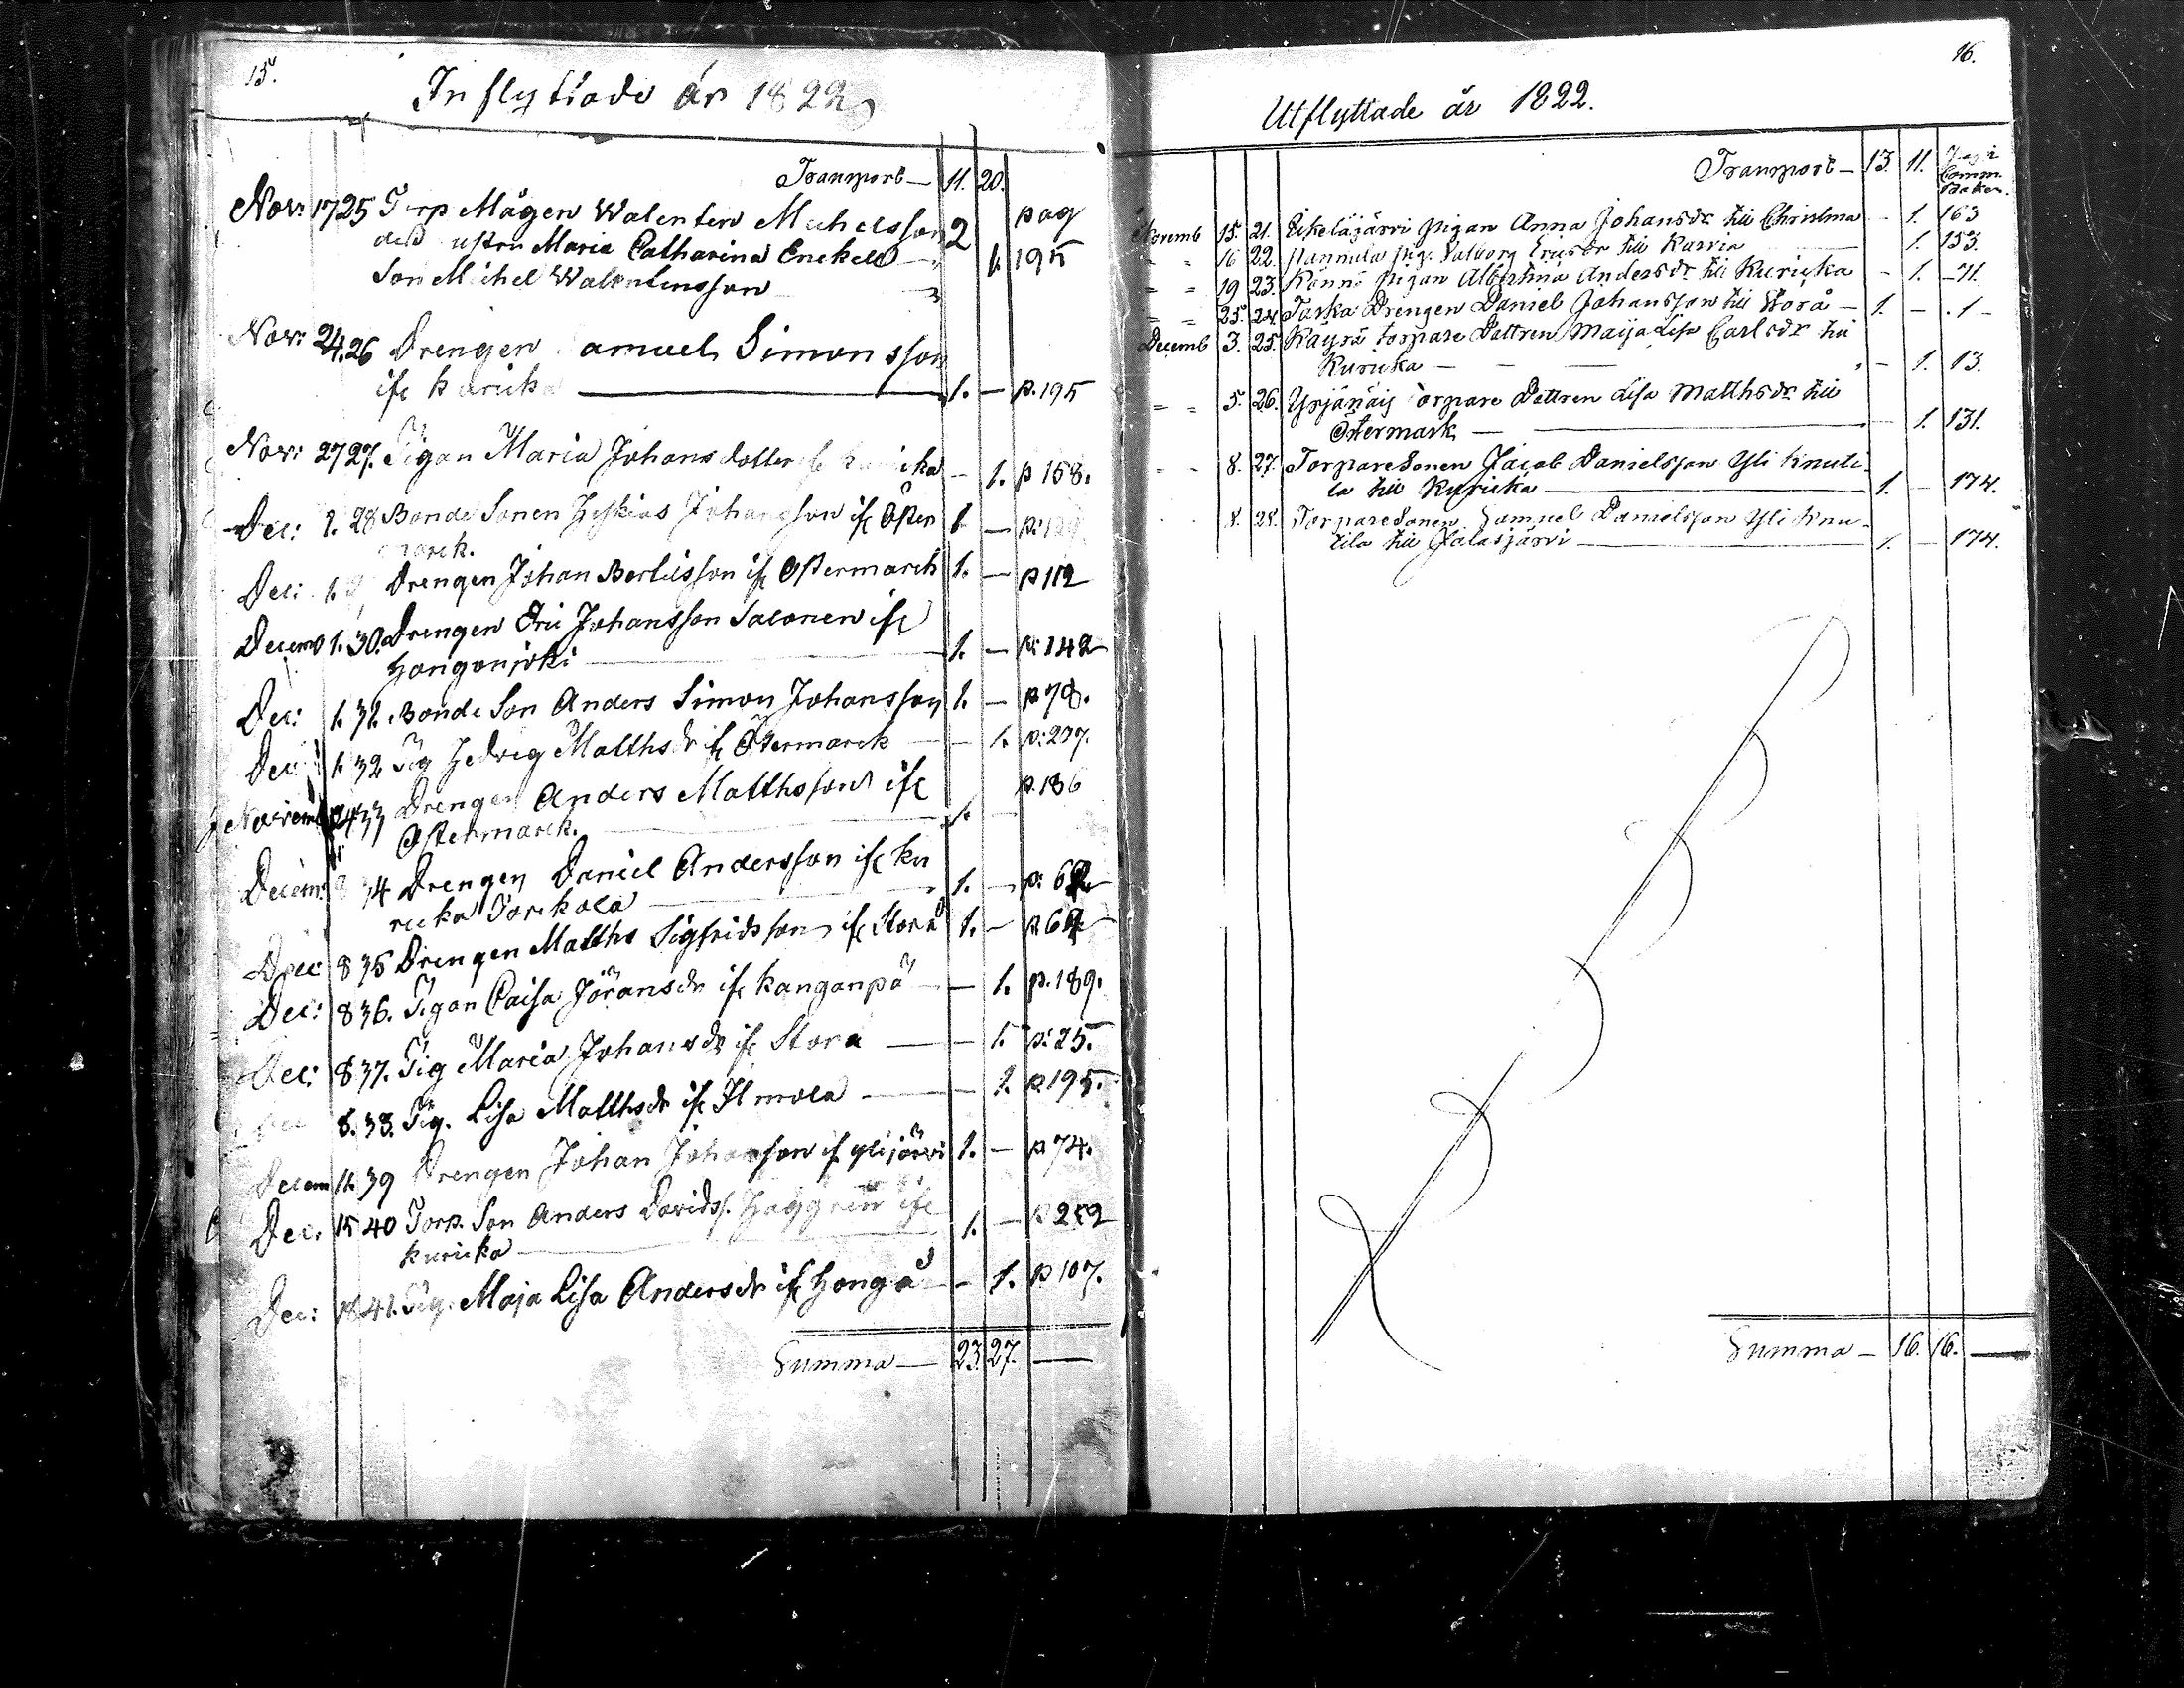 15.
Inflyttade år 1822
Transport — 11. 20.
Nov: 17 25 Torp Mågen Walenten Michelsson 2 pag
dess ustru Maria Catharina Enckell 1. 195
Son Michel Walentensson
Nov: 24. 26 Drengen Samuel Simonsson
ifr kuricka — 1. — p. 195
Nov: 27 27. Pigan Maria Johansdotter ifr kuricka — 1. p 158.
Dec: 1. 28 Bonde Sonen Heskias Johansson ifr Öster 1 —
marck.
Dec: 1. Drengen Johan Bertilsson ifr Östermarck 1. — p 112
Decemb 1. 30. Drengen Eric Johansson Salonen ifr
Hongonjoki — 1. — p: 142
Dec: 1. 31. Bonde Son Anders Simon Johansson 1. — p 78.
Dec 1. 32 Pig Hedvig Matthsdr ifr Östermarck — 1. p: 237.
Novemb 24 33 Drengen Anders Matthsson ifr p. 186
Östermarck. — 1. —
Decem: 8 34 Drengen Daniel Andersson ifr ku
ricka — 1. — p:
Dec: 8 35 Drengen Matths Sigfridsson ifr Storå 1. —
Dec: 8 36. Pigan Caisa Jöransdr ifr kanganpä — 1. p. 189.
Dec: 8 37. Pig Maria Johansdr ifr Stora — 1. p: 25.
Dec 8. 38. Pig. Lisa Matthsdr ifr Ilmola — 1. p. 195.
Decem 11. 39 Drengen Johan Johansson ifr ylijärvi 1. — p 74.
Dec. 15 40 Torp. Son Anders Davidss. Häggren ifr
kuricka — 1. —
Dec: 18 41. Pig. Maja Lisa Andersdr ifr Hongå — 1. p 107.
Summa — 23. 27. —
16.
Utflyttade år 1822.
Transport — 13. 11. Pag i
Comm.
Boken.
Novemb 15. 21. Eikeläjärvi pigan Anna Johansdr till Christina — 1. 163
" " 16 22. Hannula pig. Valborg Ericsdr till Karvia — 1. 153.
" " 19 23. Könnö pigan Albertina Andersdr till Kuricka — 1. — 71.
" " 25. 24. Taska Drengen Daniel Johansson till Storå — 1. — . 1 —
Decemb 3. 25. Käyrä torpare Dottren Maija Lisa Carlsdr till
Kuricka — 1. 13.
" " 5. 26. Yrjänäis Torpare Dottren Lisa Matthsdr till
Östermark — 1. 131.
" " 8. 27. Torpare Sonen Jacob Danielsson Yli Knuti-
la till Kuricka — 1. — 174.
8. 28. Torpare Sonen Samuel Danielsson Yli Knu-
tila till Jalasjärvi — 1. — 174.
Summa — 16. 16. —